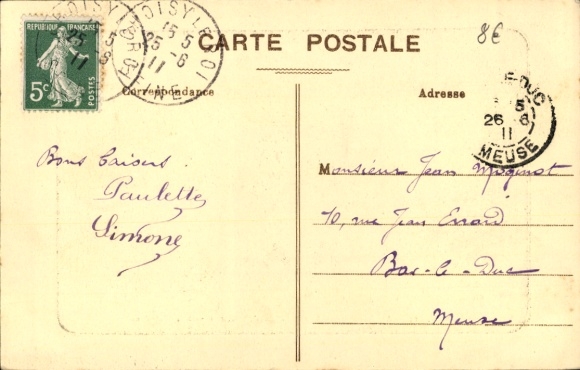 RÉPUBLIQUE FRANÇAISE
5c
POSTES
CHOISY LE ROI
15 5
25 - 6
11
SEINE
CARTE POSTALE
8€
Correspondance
Adresse
-DUC
5
26 - 6
11
MEUSE
Bons baisers.
Paulette
Simone
Monsieur Jean Maginot
10, rue Jean Errard
Bar-le-Duc
Meuse